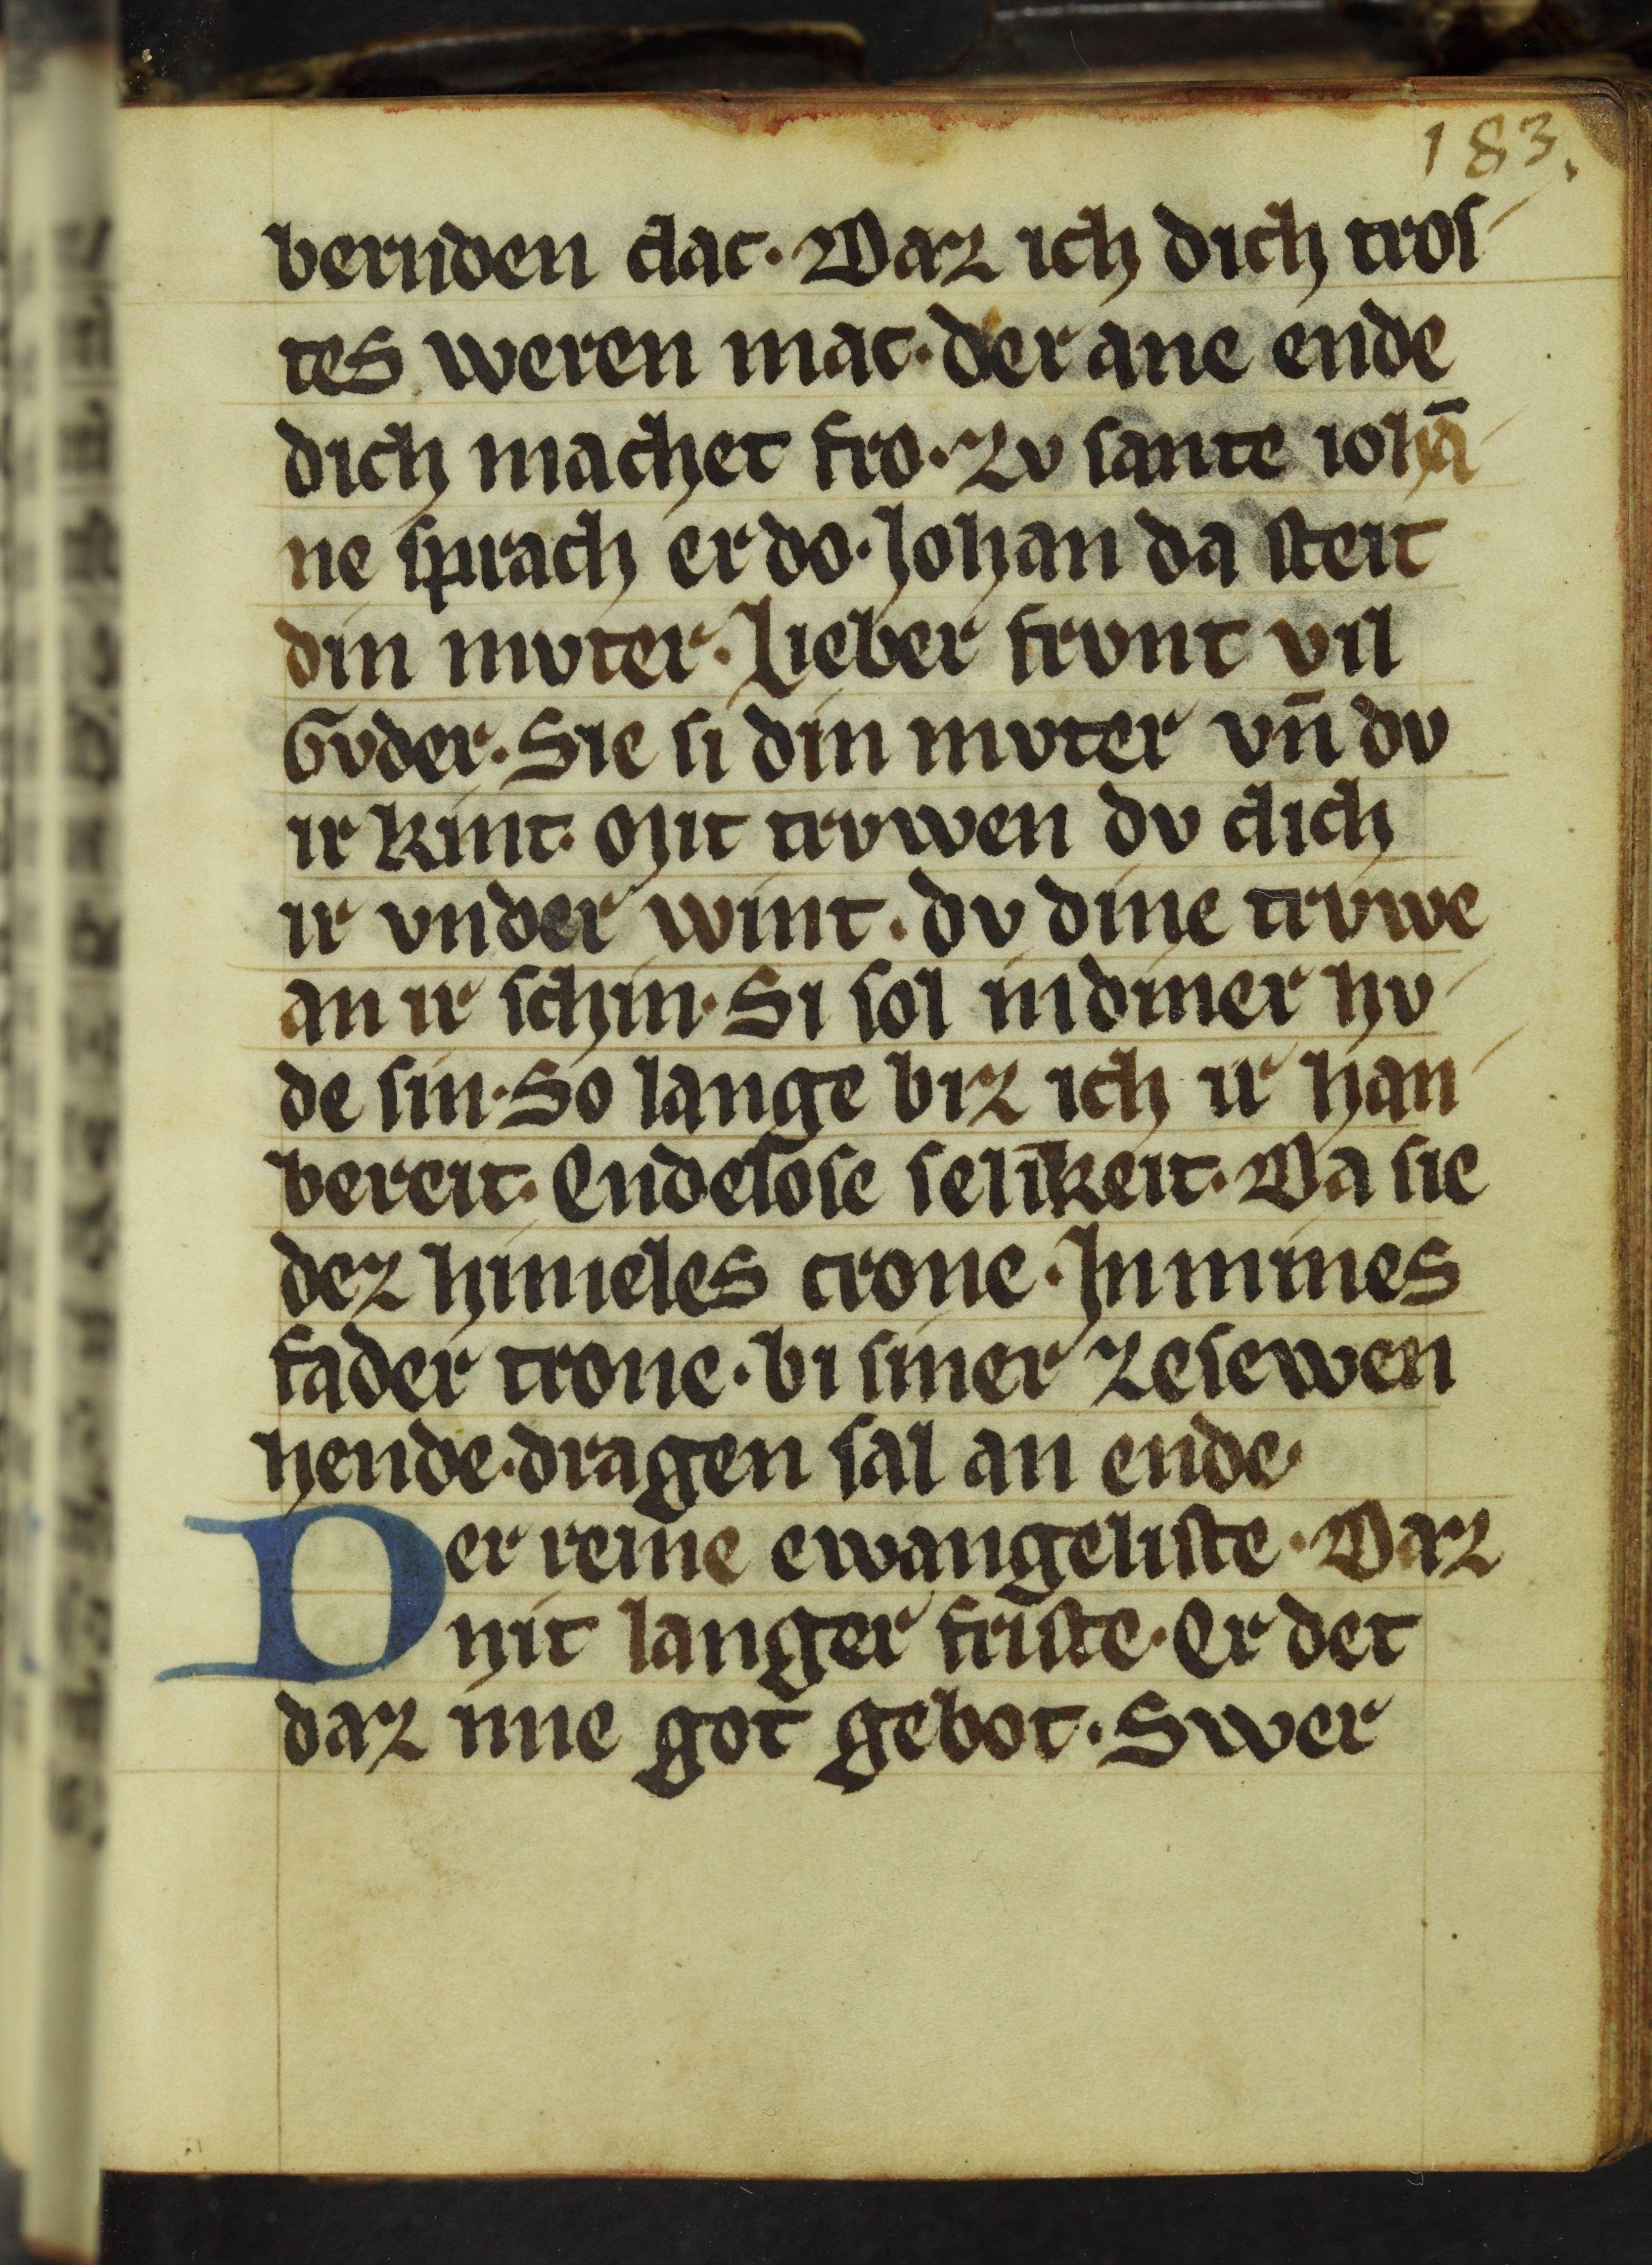 183.
bernden dac. Daz ich dich tros
tes weren mac. der ane ende
dich machet fro. Zv sante iohā
ne sprach er do. Johan da steit
din mvter. Lieber frvnt vil
Gvder. Sie si din mvter vn̄ dv
ir kint. Mit trvwen dv dich
ir vnder wint. dv dine trvwe
an ir schin. Si sol in diner hv
de sin. So lange biz ich ir han
bereit. Endelose selikeit. Da sie
dez himeles crone. In mines
fader trone. bi siner zesewen
hende. dragen sal an ende.
Der reine ewangeliste. Daz
nit langer friste. Er det
daz ime got gebot. Swer